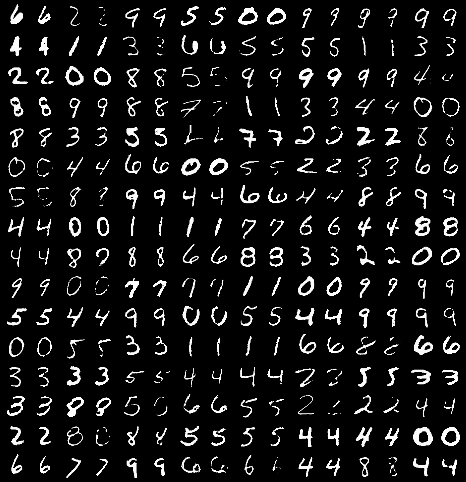 6 6 2 2 9 9 5 5 0 0 9 9 9 9 9 9
4 4 1 1 3 3 6 6 5 5 5 5 1 1 3 3
2 2 0 0 8 8 5 5 9 9 9 9 9 9 4
8 8 9 9 8 8 7 7 1 1 3 3 4 4 0 0
8 8 3 3 5 5 7 7 2 2 2 2 8 8
0 0 4 4 6 6 0 0 5 5 2 2 3 3 6 6
5 5 8 9 9 4 4 6 6 4 4 8 8 9 9
4 4 0 0 1 1 1 1 7 7 6 6 4 4 8 8
4 4 8 9 8 8 6 6 8 8 3 3 2 2 0 0
9 9 0 0 7 7 7 7 1 1 0 0 9 9 9 9
5 5 4 4 9 9 0 0 5 5 4 4 9 9 9 9
0 0 5 5 3 3 1 1 1 1 6 6 8 8 6 6
3 3 3 3 5 5 4 4 4 4 7 5 5 3 3
3 3 8 8 5 5 6 6 5 5 2 2 2 4 4
2 2 8 8 8 8 5 5 5 5 4 4 4 4 0 0
6 6 7 7 9 9 6 6 6 4 4 8 8 4 4